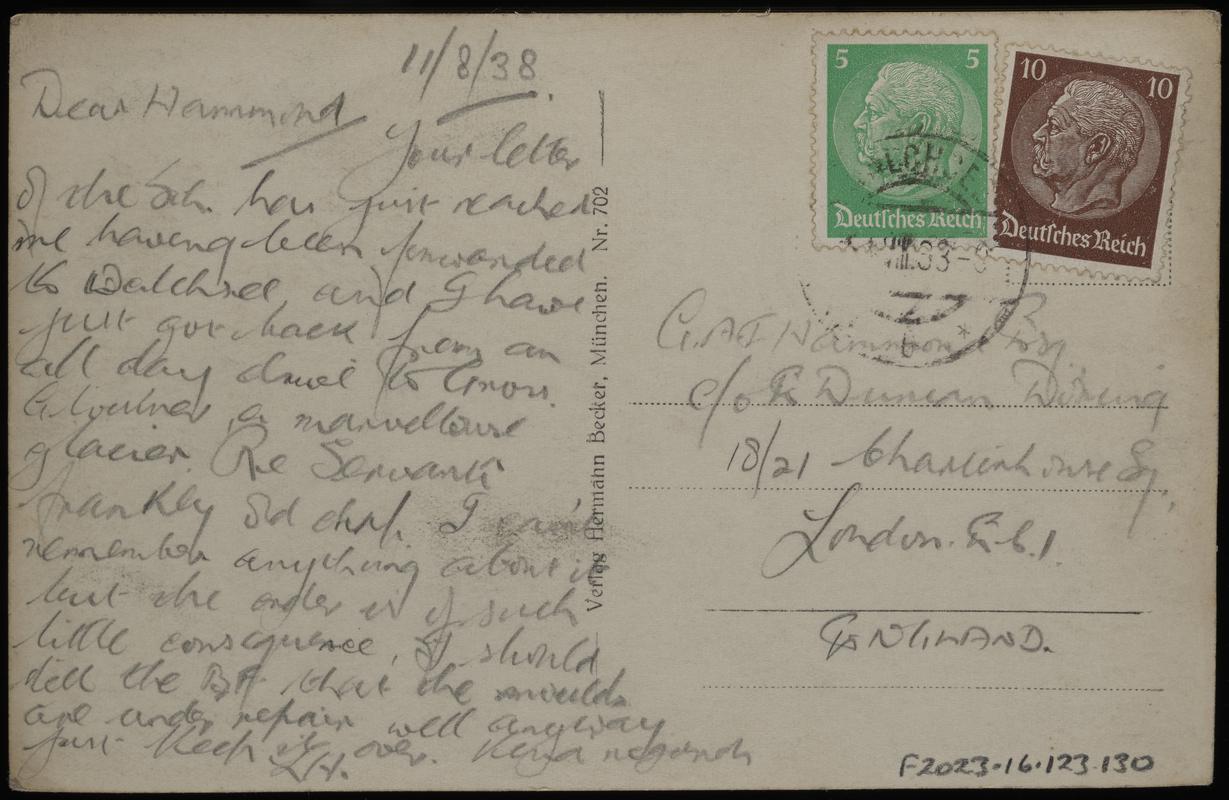 11/8/38.
Dear Hammond
Your letter
of the 5th. has just reached
me having been forwarded
to Walchsee, and I have
just got back from an
all day drive to Gross
Glockner, a marvellous
glacier. Re Servants
frankly old chap, I can't
remember anything about it
but the order is of such
little consequence, I should
tell the BF that the moulds
are under repair well anyway
just keep it over. Kind regards
Verlag Hermann Becker, München. Nr. 702
5 5
Deutsches Reich
10 10
Deutsches Reich
b *
G.A.T Hammond Esq
c/o Duncan
18/21 Charterhouse Sq.
London. E.C.1.
ENGLAND.
F2023.16.123.130